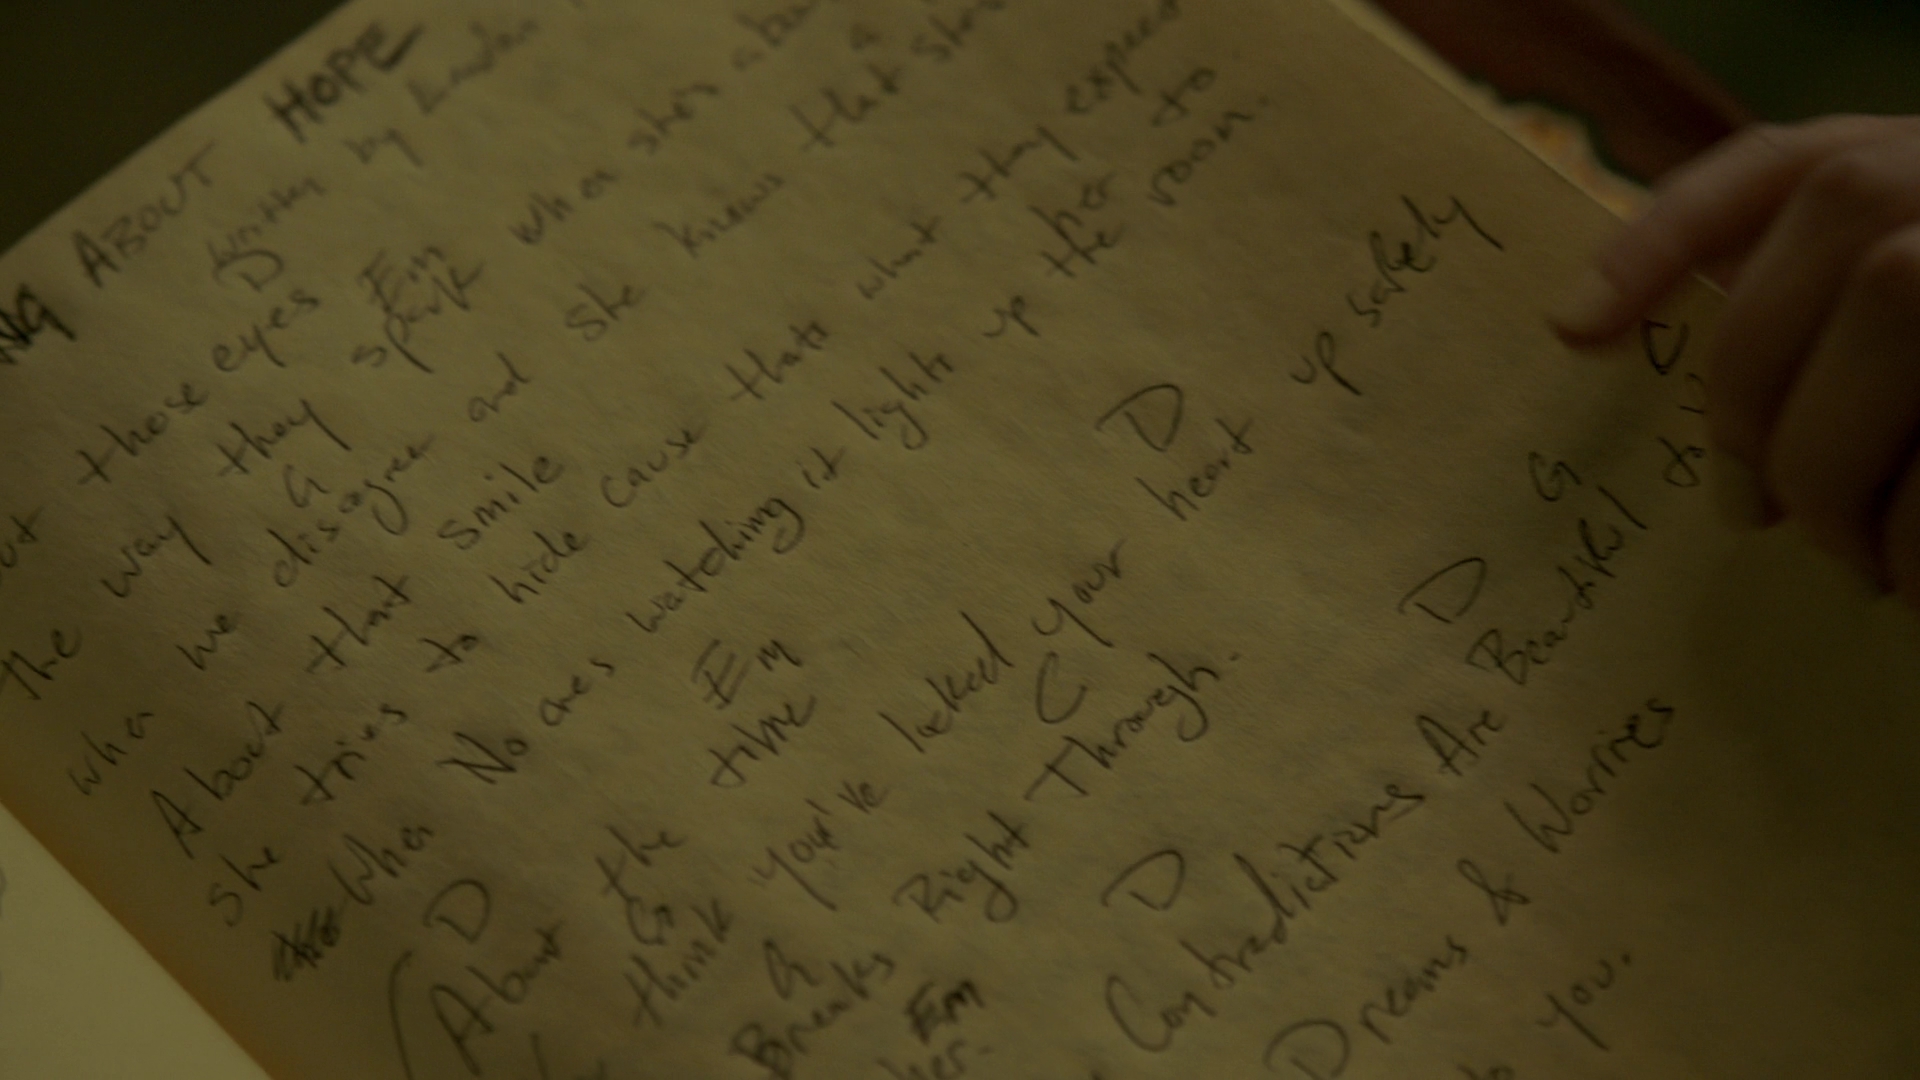 ABOUT HOPE
written by Landon
D Em
those eyes when she's
the way they spark
G
when we disagree and she knows that
About that smile
she tries to hide cause thats what they expect her to
When No ones watching it lights up the room.
D Em
About the time
G D
think you've locked your heart up safely
G C
Breaks Right Through.
Em D D G C
her. Contradictions Are Beautiful to
Dreams & Worries
you.